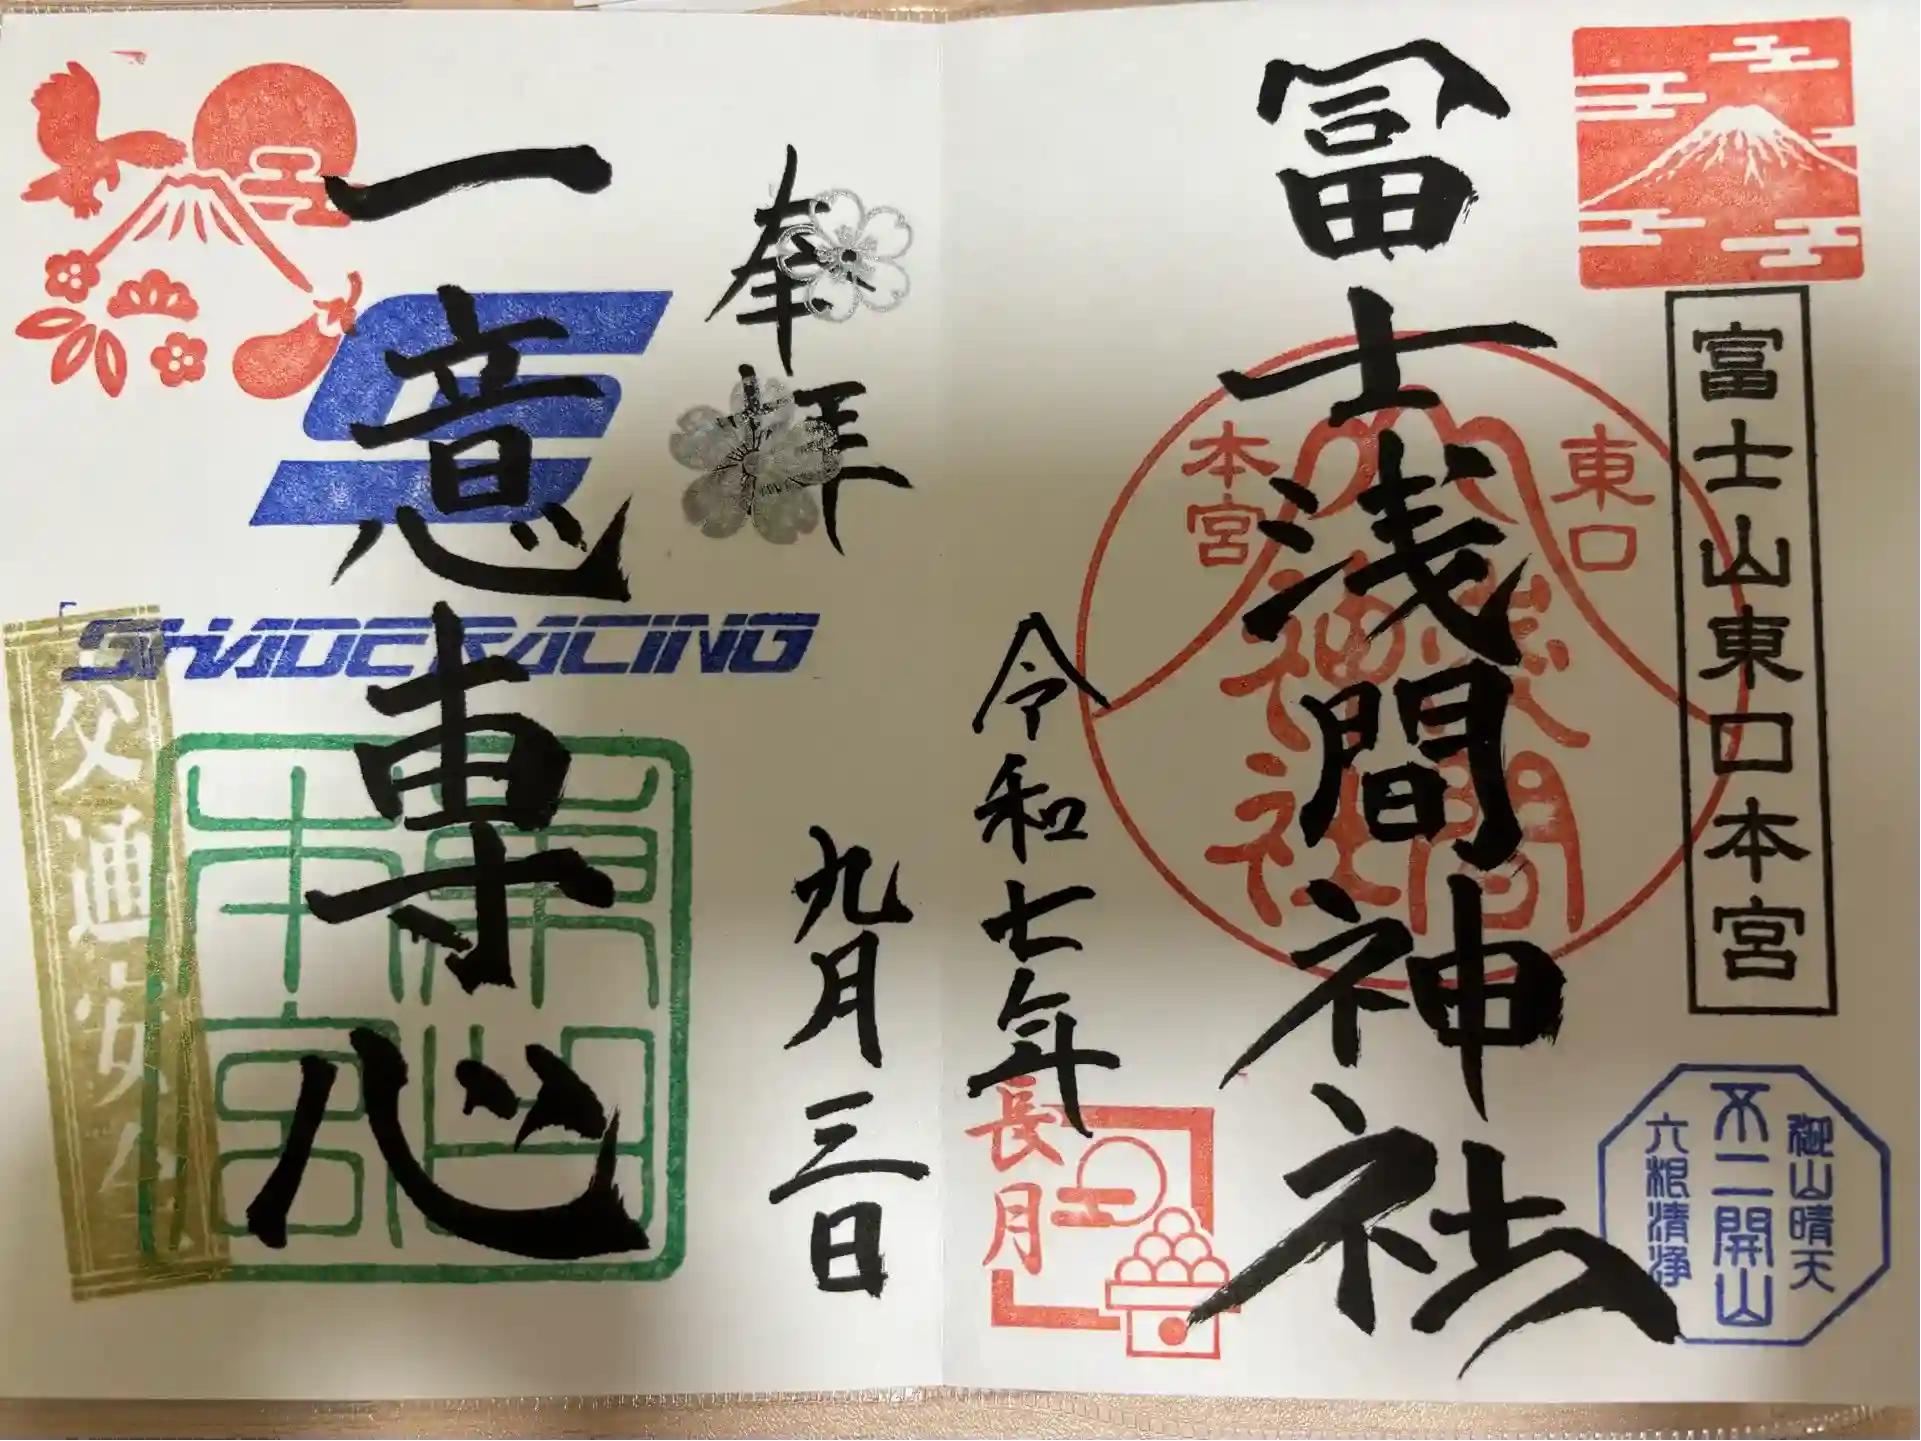 富士山東口本宮
御山晴天
不二開山
六根清浄
冨士浅間神社
東口
本宮
浅間
神社
令和七年
長月
九月三日
奉拝
一意専心
SHADE RACING
東口
本宮
交通安全